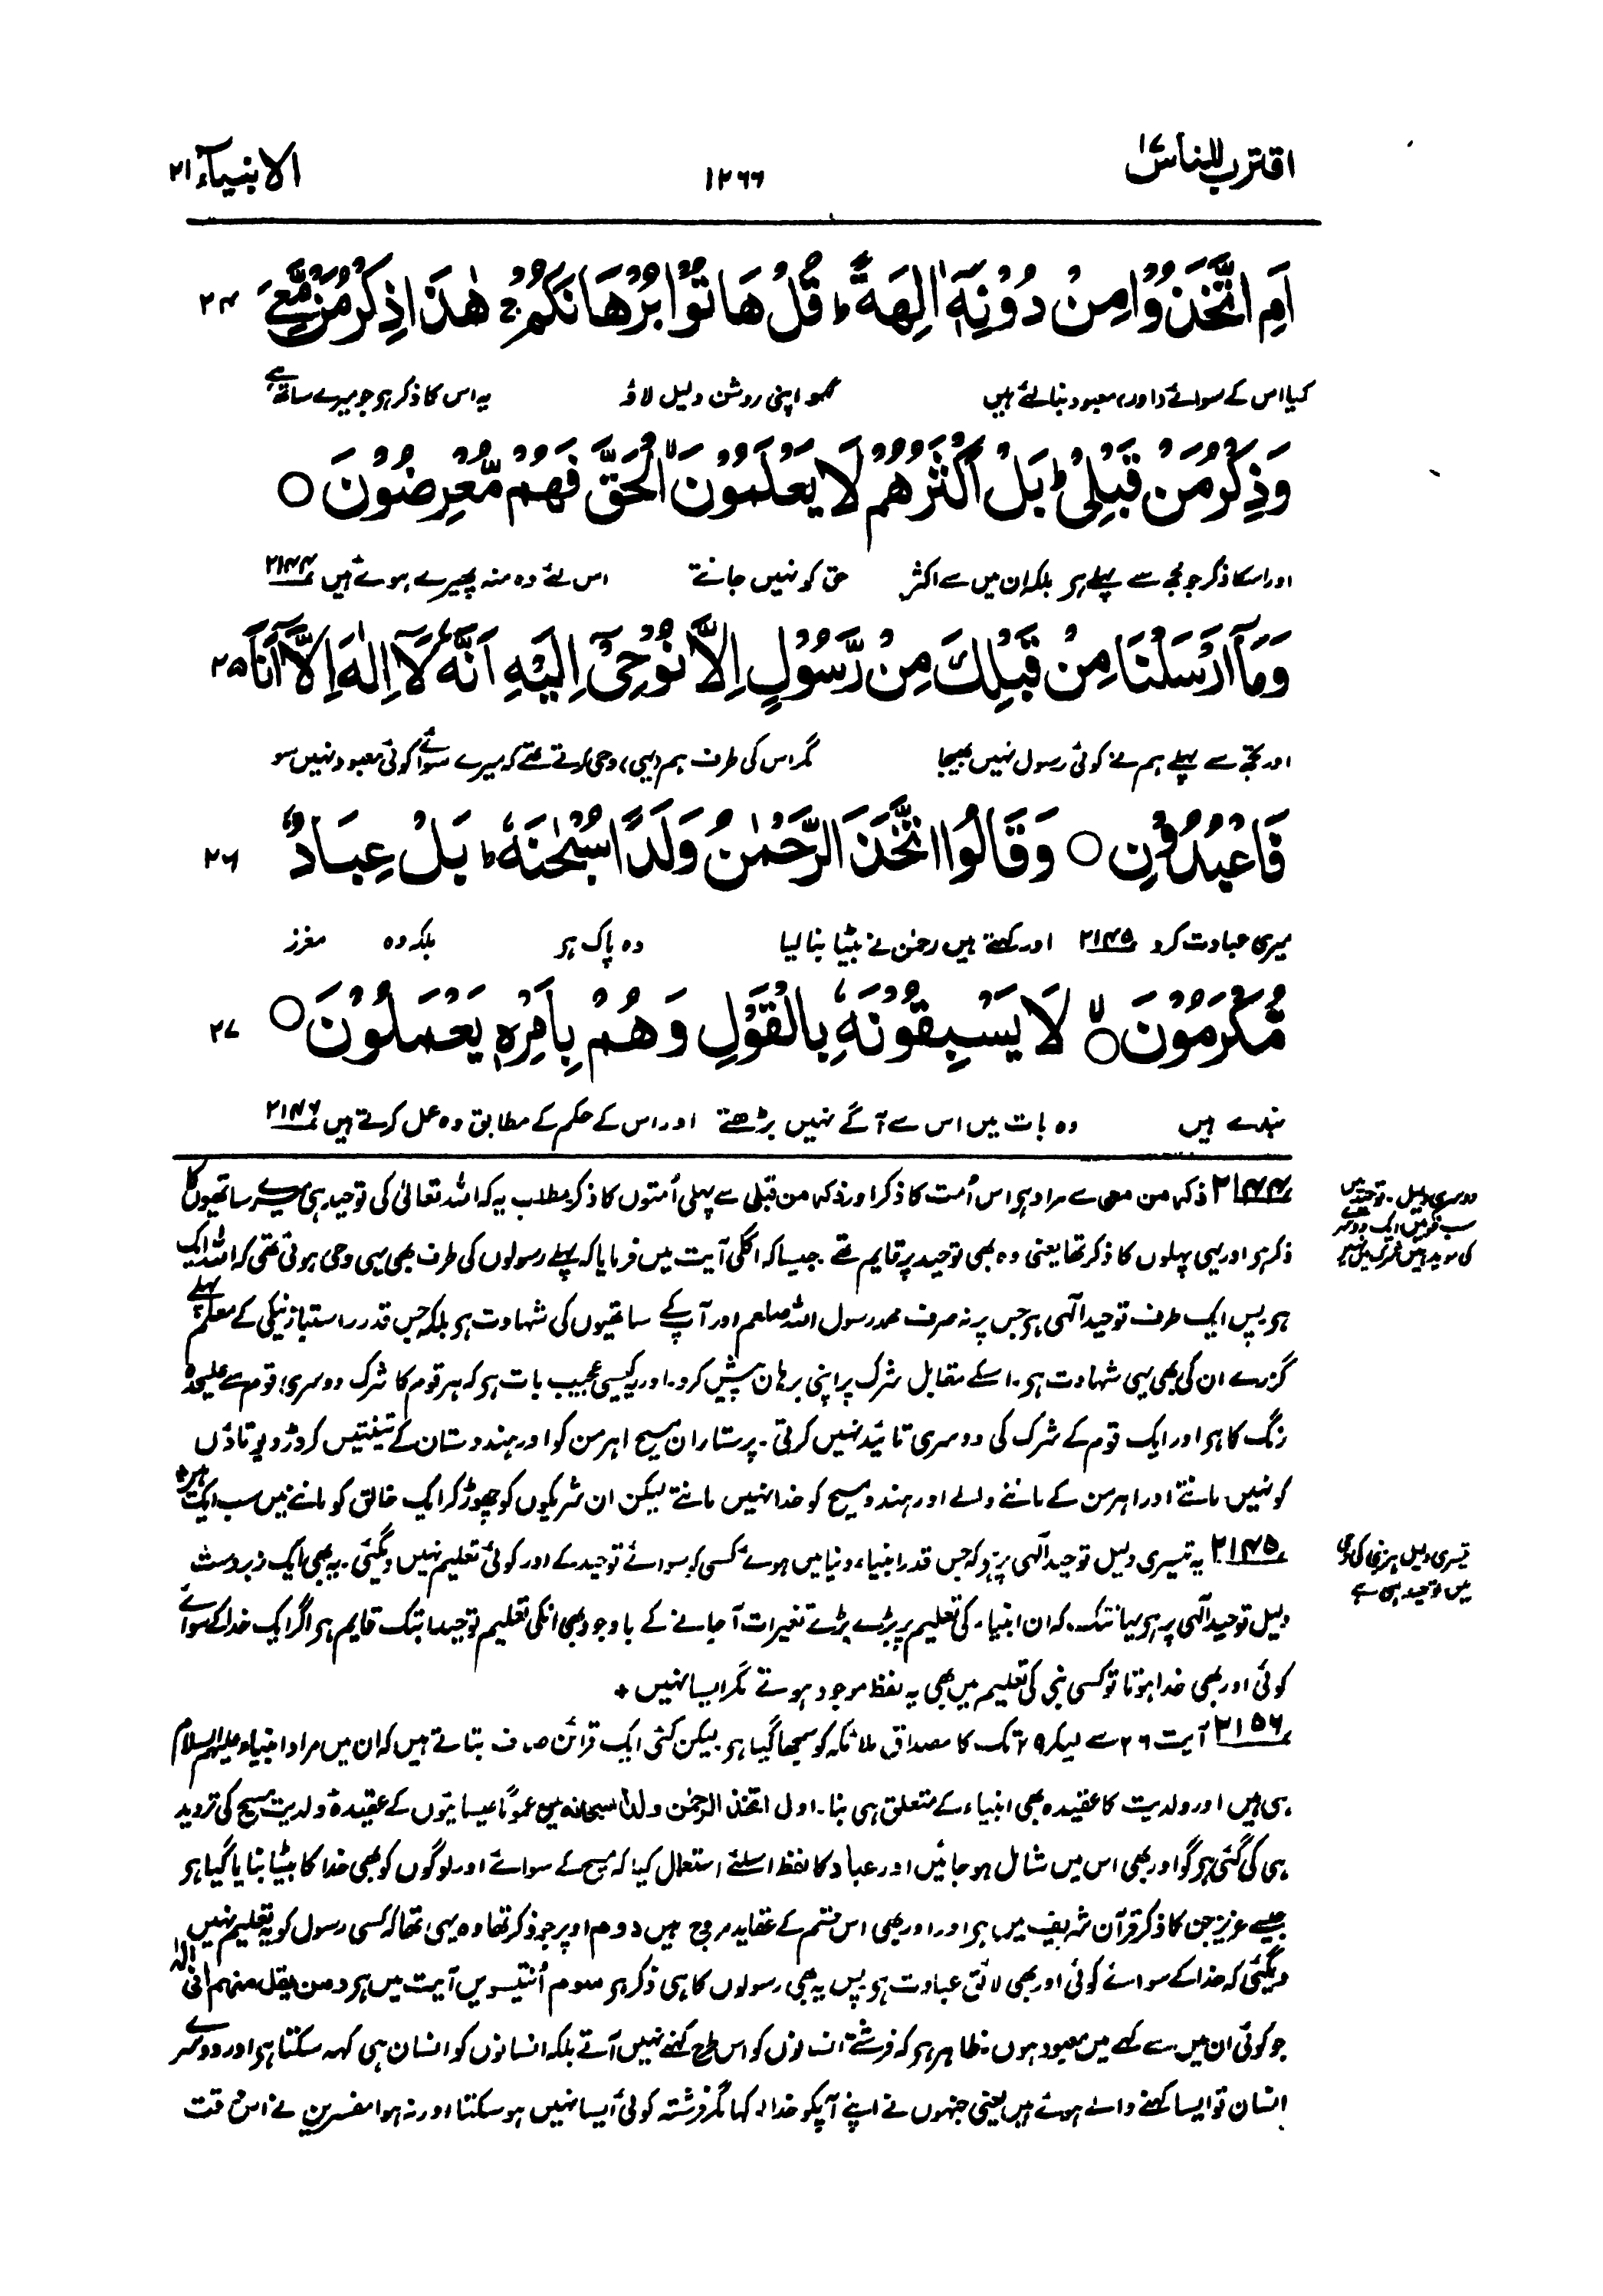 اقترب للناس ۱۷
۱۲۶۶
الانبیآء ۲۱
اَمِ اتَّخَذُوْا مِنْ دُوْنِهٖٓ اٰلِهَةً ؕ قُلْ هَاتُوْا بُرْهَانَكُمْ ۚ هٰذَا ذِكْرُ مَنْ مَّعِیَ ۲۴
کیا اس کے سوائے (اور) معبود بنا لئے ہیں کہو اپنی روشن دلیل لاؤ یہ اس کا ذکر ہو جو میرے ساتھ ہے
وَذِكْرُ مَنْ قَبْلِیْ ؕ بَلْ اَكْثَرُهُمْ لَا یَعْلَمُوْنَ ۙ الْحَقَّ فَهُمْ مُّعْرِضُوْنَ ○
اور اسکا ذکر جو مجھ سے پہلے ہو بلکہ ان میں سے اکثر حق کو نہیں جانتے اس لئے وہ منہ پھیرے ہوئے ہیں ۲۱۴۴
وَمَآ اَرْسَلْنَا مِنْ قَبْلِكَ مِنْ رَّسُوْلٍ اِلَّا نُوْحِیْٓ اِلَیْهِ اَنَّهٗ لَآ اِلٰهَ اِلَّآ اَنَا ۲۵
اور تجھ سے پہلے ہم نے کوئی رسول نہیں بھیجا مگر اس کی طرف ہم (یہی) وحی کرتے تھے کہ میرے سوائے کوئی معبود نہیں سو
فَاعْبُدُوْنِ ○ وَقَالُوا اتَّخَذَ الرَّحْمٰنُ وَلَدًا سُبْحٰنَهٗ ؕ بَلْ عِبَادٌ ۲۶
میری عبادت کرو ۲۱۴۵ اور کہتے ہیں رحمٰن نے بیٹا بنا لیا وہ پاک ہو بلکہ وہ معزز
مُّكْرَمُوْنَ ○ۙ لَا یَسْبِقُوْنَهٗ بِالْقَوْلِ وَهُمْ بِاَمْرِهٖ یَعْمَلُوْنَ ○ ۲۷
بندے ہیں وہ بات میں اس سے آگے نہیں بڑھتے اور اس کے حکم کے مطابق وہ عمل کرتے ہیں ۲۱۴۶
۲۱۴۴ ذکر من معی سے مراد ہو اس اُمت کا ذکر اور ذکر من قبلی سے پہلی اُمتوں کا ذکر مطلب یہ کہ اللہ تعالیٰ کی توحید ہی میرے ساتھیوں کا
ذکر ہو اور یہی پہلوں کا ذکر تھا یعنی وہ بھی توحید پر قایم تھے۔ جیسا کہ اگلی آیت میں فرمایا کہ پہلے رسولوں کی طرف بھی یہی وحی ہوتی تھی کہ اللہ ایک
ہو پس ایک طرف توحید الٰہی ہو جس پر نہ صرف محمد رسول اللہ صلعم اور آپ کے ساتھیوں کی شہادت ہو بلکہ جس قدر راستباز نیکی کے معلم پہلے
گزرے ان کی بھی یہی شہادت ہو۔ اسکے مقابل شرک پر اپنی برہان پیش کرو۔ اور یہ کیسی عجیب بات ہو کہ ہر قوم کا شرک دوسری قوم سے علیحدہ
رنگ کا ہو اور ایک قوم کے شرک کی دوسری تائید نہیں کرتی۔ پرستاران مسیح اہرمن کو اور ہندوستان کے تینتیس کروڑ دیوتاؤں
کو نہیں مانتے اور اہرمن کے ماننے والے اور ہندو مسیح کو خدا نہیں مانتے لیکن ان شریکوں کو چھوڑ کر ایک خالق کو ماننے میں سب ایک ہیں +
۲۱۴۵ یہ تیسری دلیل توحید الٰہی پر ہو کہ جس قدر انبیاء دنیا میں ہوئے کسی کو سوائے توحید کے اور کوئی تعلیم نہیں دیگئی۔ یہ بھی ایک زبردست
دلیل توحید الٰہی پر ہو یہانتک۔ کہ ان انبیاء کی تعلیم پر بڑے بڑے تغیرات آجانے کے باوجود بھی انکی تعلیم توحید ابتک قایم ہو اگر ایک خدا کے سوائے
کوئی اور بھی خدا ہوتا تو کسی نبی کی تعلیم میں بھی یہ لفظ موجود ہوتے مگر ایسا نہیں +
۲۱۵۶ آیت ۲۶ سے لیکر ۲۹ تک کا مصداق ملائکہ کو سمجھا گیا ہو لیکن کئی ایک قرائن صاف بتاتے ہیں کہ ان میں مراد انبیاء علیہم السلام
ہی ہیں اور ولدیت کا عقیدہ بھی انبیاء کے متعلق ہی بنا۔ اول اتخذ الرحمٰن ولدا سبحانہ میں عموماً عیسائیوں کے عقیدۂ ولدیت مسیح کی تردید
ہی کی گئی ہو گو اور بھی اس میں شامل ہو جائیں اور عباد کا لفظ اسلئے استعمال کیا کہ مسیح کے سوائے اور لوگوں کو بھی خدا کا بیٹا بنایا گیا ہو
جیسے عزیر جن کا ذکر قرآن شریف میں ہو اور اور بھی اس قسم کے عقاید مروج ہیں دوم اوپر جو ذکر تھا وہ یہی تھا کہ کسی رسول کو یہ تعلیم نہیں
دیگئی کہ خدا کے سوائے کوئی اور بھی لائق عبادت ہو پس یہ بھی رسولوں کا ہی ذکر ہو سوم اُنتیسویں آیت میں ہو ومن یقل منہم انی الٰہ
جو کوئی ان میں سے کہے میں معبود ہوں۔ ظاہر ہو کہ فرشتے انسانوں کو اس طرح کہنے نہیں آتے بلکہ انسانوں کو انسان ہی کہہ سکتا ہو اور دوسرے
انسان تو ایسا کہنے والے ہوئے ہیں یعنی جنہوں نے اپنے آپکو خدا کہا مگر فرشتہ کوئی ایسا نہیں ہو سکتا اور نہ ہوا مفسرین نے اس وقت
دوسری دلیل۔ توحید میں
سب قومیں ایک دوسرے
کی موید ہیں شرک میں نہیں
تیسری دلیل ہر نبی کی وحی
میں توحید ہی ہے